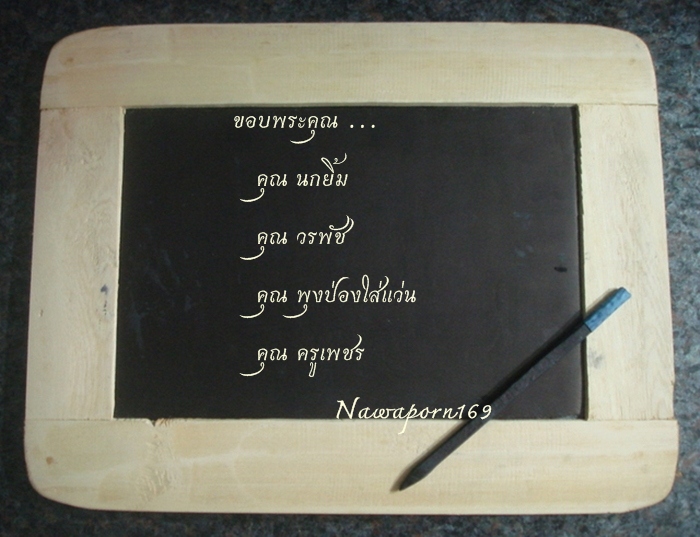 ขอบพระคุณ ...
คุณ นกยิ้ม
คุณ วรพัช
คุณ พุงป่องใส่แว่น
คุณ ครูเพชร
Nawaporn169